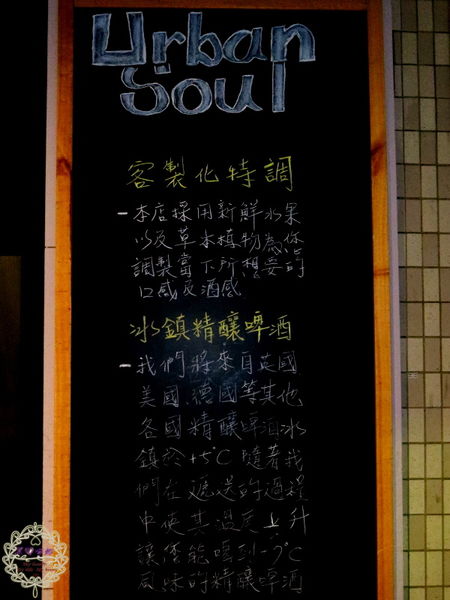 Urban
Soul
客製化特調
-本店採用新鮮水果
以及草本植物為你
調製當下所想要的
口感及酒感
冰鎮精釀啤酒
-我們將來自英國
美國、德國等其他
各國精釀啤酒冰
鎮於+5°C 隨著我
們在遞送的過程
中使其溫度上升
讓您能喝到-7°C
風味的精釀啤酒